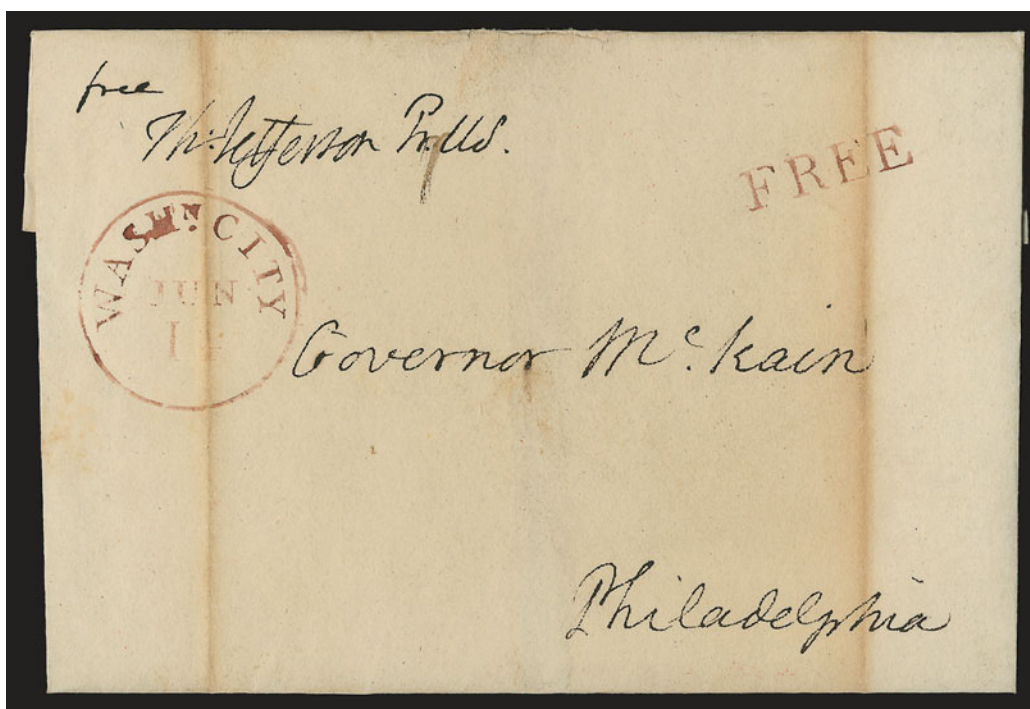 free
Th: Jefferson Pr. US.
FREE
WASHN. CITY
JUN
1
Governor Mc. Kain
Philadelphia